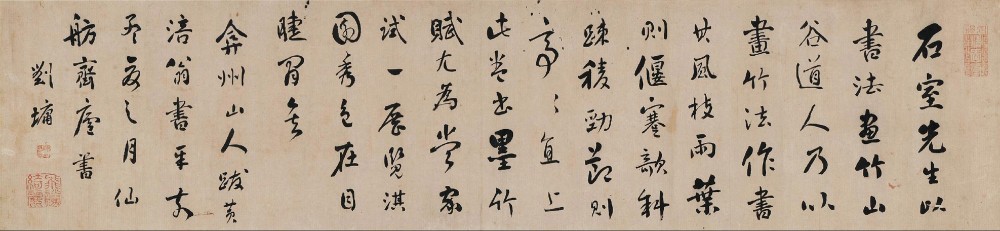 石室先生以
書法畫竹山
谷道人乃以
畫竹法作書
其風枝雨葉
則偃蹇欹斜
疎稜勁節則
亭〻直上
此卷書墨竹
賦尤為當家
試一展覽淇
園秀色在目
睫間矣
弇州山人跋黃
涪翁書
夏之月仙
舫齋書
劉墉